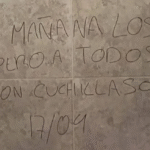 MAÑANA LOS
PERO A TODOS
CON CUCHILLASO
17/09